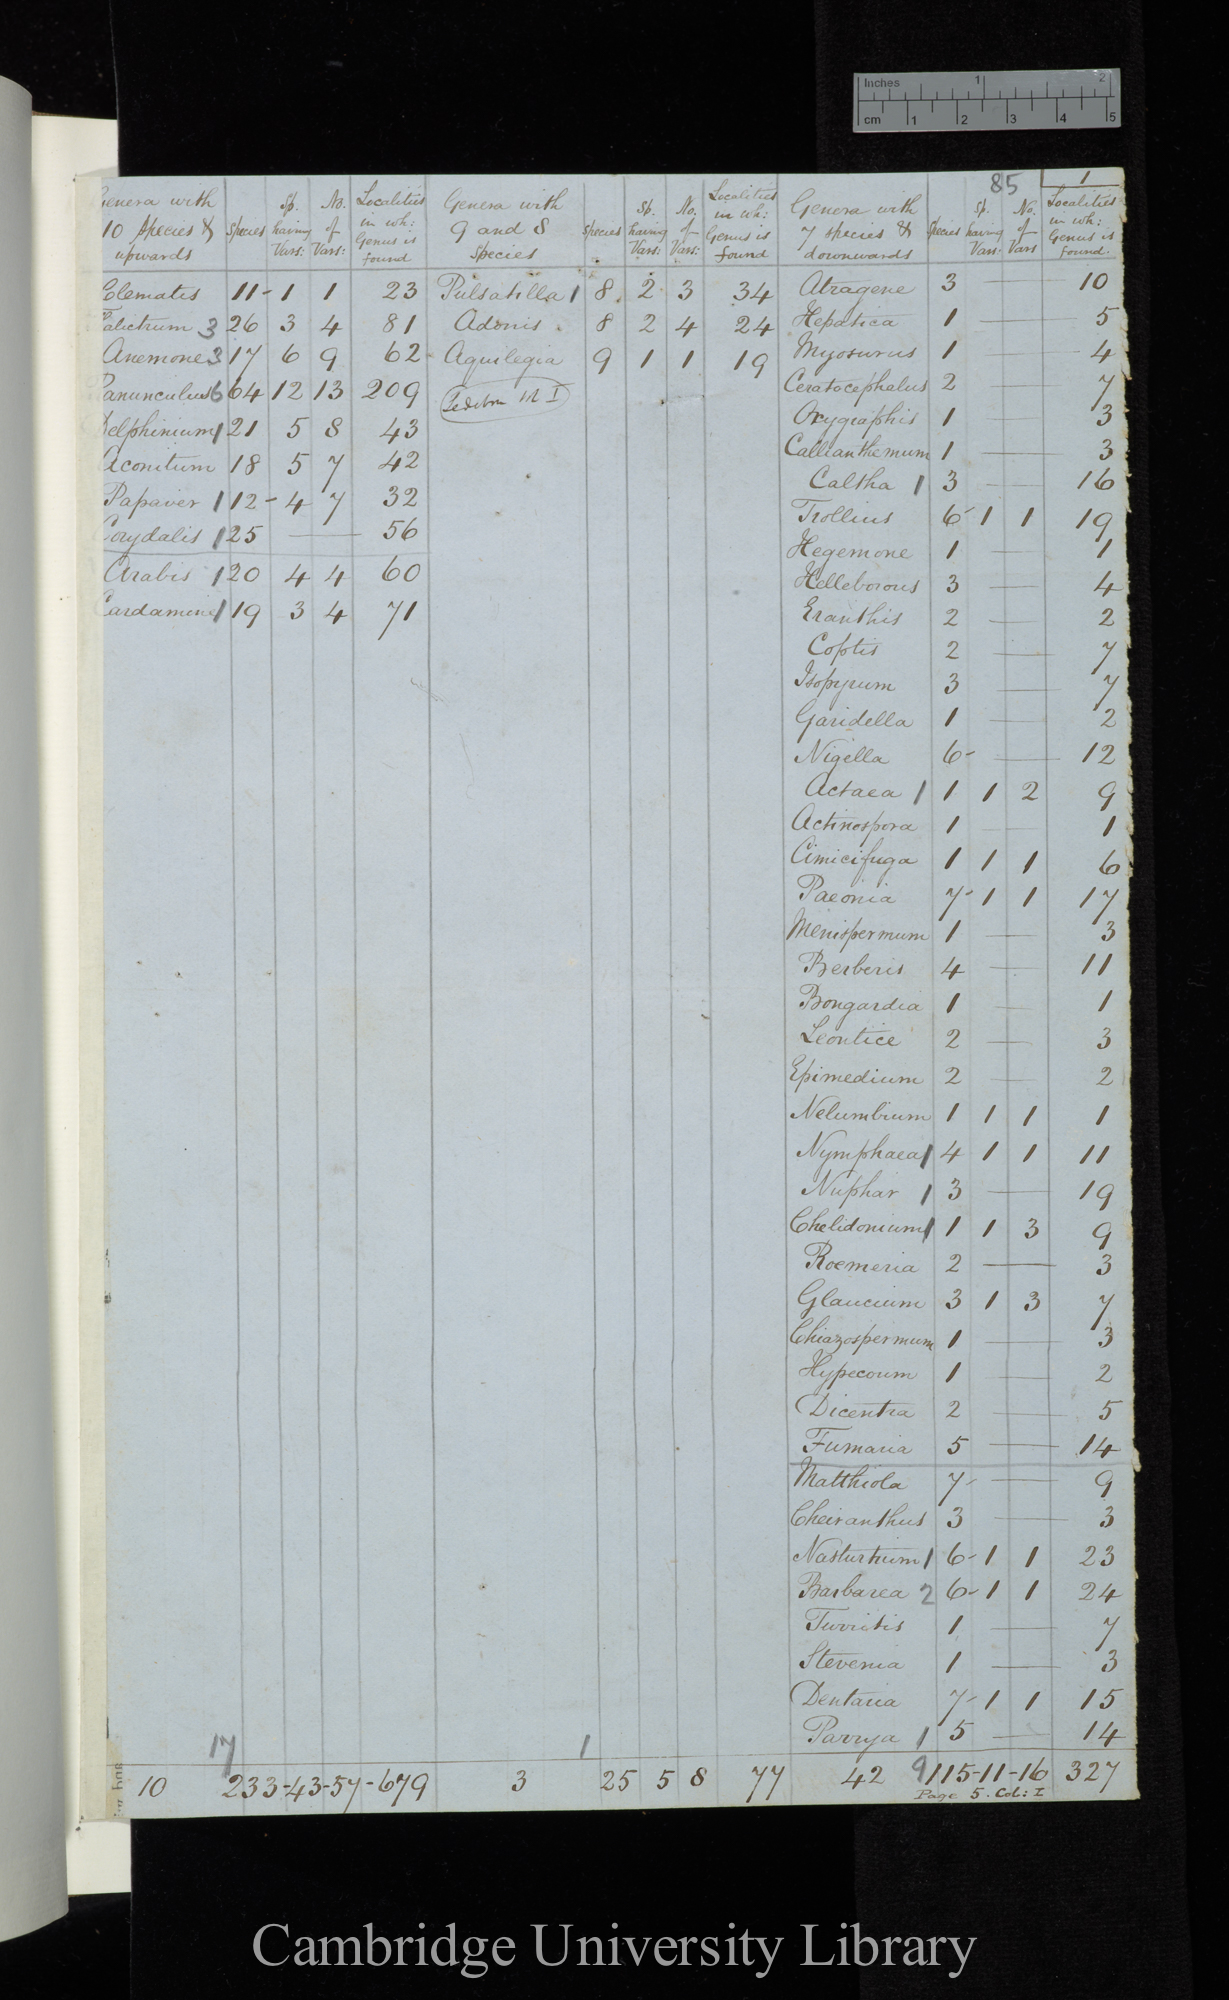 Inches 1 2
cm 1 2 3 4 5
85 1
Genera with 10 species & upwards | Species | Sp. having Vars: | No. of Vars: | Localities in wh: Genus is found | Genera with 9 and 8 Species | Species | Sp. having Vars: | No. of Vars: | Localities in wh: Genus is found | Genera with 7 species & downwards | Species | Sp. having Vars: | No. of Vars | Localities in wh: Genus is found.
Clematis 11- 1 1 23
Talictrum 3 26 3 4 81
Anemone 3 17 6 9 62
Ranunculus 6 64 12 13 209
Delphinium 1 21 5 8 43
Aconitum 18 5 7 42
Papaver 1 12- 4 7 32
Corydalis 1 25 — 56
Arabis 1 20 4 4 60
Cardamine 1 19 3 4 71
17
10 233-43-57-679
Pulsatilla 1 8 2 3 34
Adonis 8 2 4 24
Aquilegia 9 1 1 19
1
3 25 5 8 77
Atragene 3 — 10
Hepatica 1 — 5
Myosurus 1 — 4
Ceratocephalus 2 — 7
Oxygraphis 1 — 3
Callianthemum 1 — 3
Caltha 1 3 — 16
Trollius 6- 1 1 19
Hegemone 1 — 1
Helleborous 3 — 4
Eranthis 2 — 2
Coptis 2 — 7
Isopyrum 3 — 7
Garidella 1 — 2
Nigella 6- — 12
Actaea 1 1 1 2 9
Actinospora 1 — 1
Cimicifuga 1 1 1 6
Paeonia 7- 1 1 17
Menispermum 1 — 3
Berberis 4 — 11
Bongardia 1 — 1
Leontice 2 — 3
Epimedium 2 — 2
Nelumbium 1 1 1 1
Nymphaea 1 4 1 1 11
Nuphar 1 3 — 19
Chelidonium 1 1 1 3 9
Roemeria 2 — 3
Glaucium 3 1 3 7
Chiazospermum 1 — 3
Hypecoum 1 — 2
Dicentra 2 — 5
Fumaria 5 — 14
Matthiola 7- — 9
Cheiranthus 3 — 3
Nasturtium 1 6- 1 1 23
Barbarea 2 6- 1 1 24
Turritis 1 — 7
Stevenia 1 — 3
Dentaria 7- 1 1 15
Parrya 1 5 — 14
42 9 115-11-16 327
Page 5. Col: I
Cambridge University Library